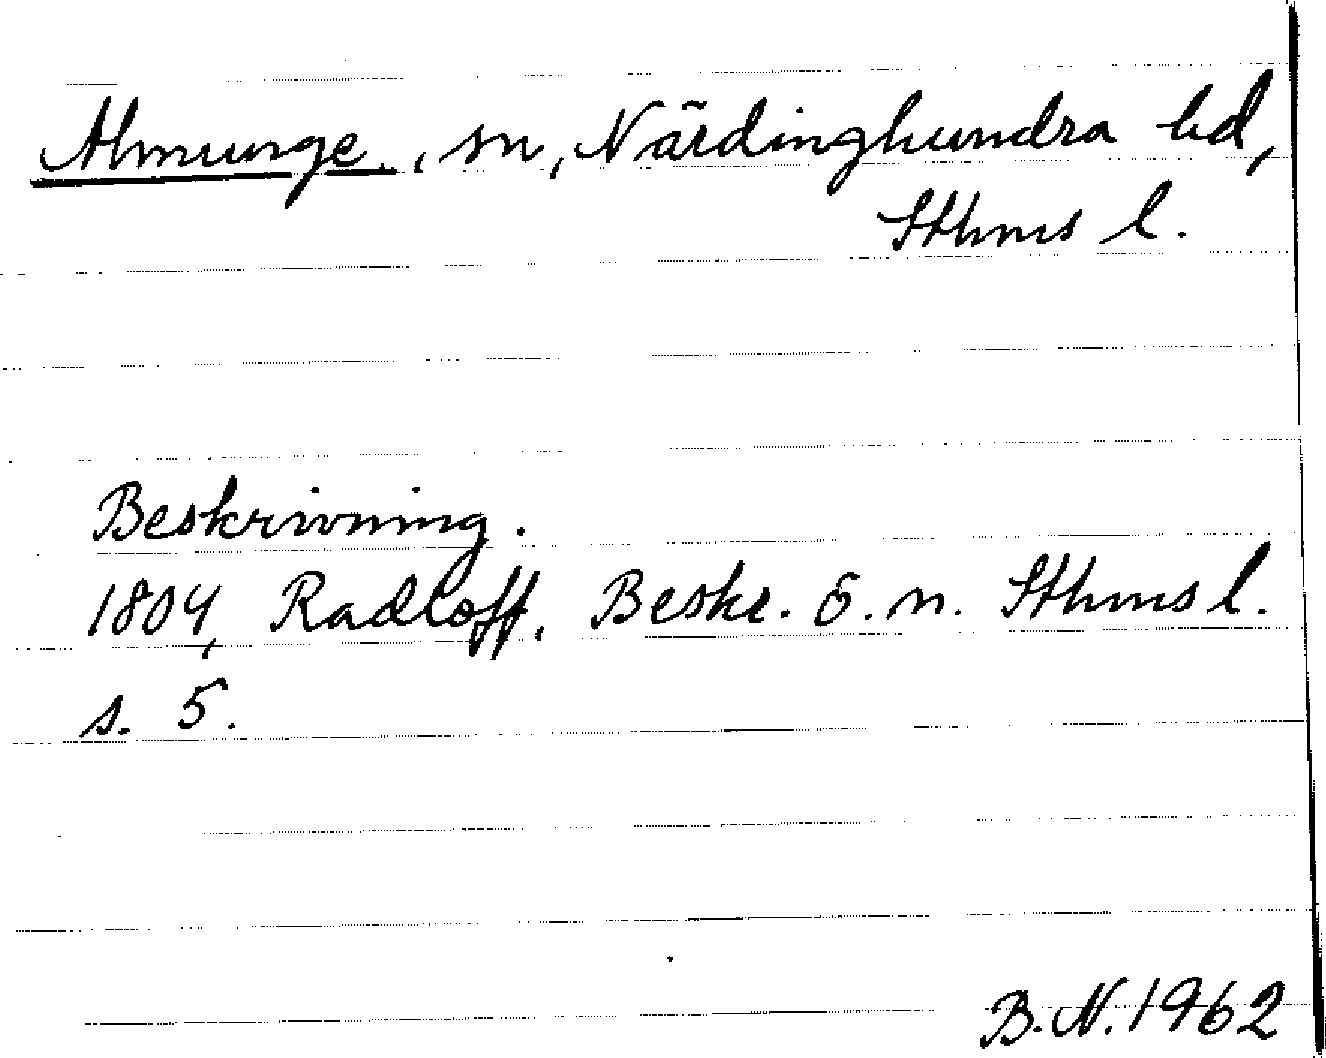 Almunge, sn, Närdinghundra hd,
Sthms l.
Beskrivning.
1804, Radloff, Beskr. ö. n. Sthms l.
s. 5.
B.N. 1962